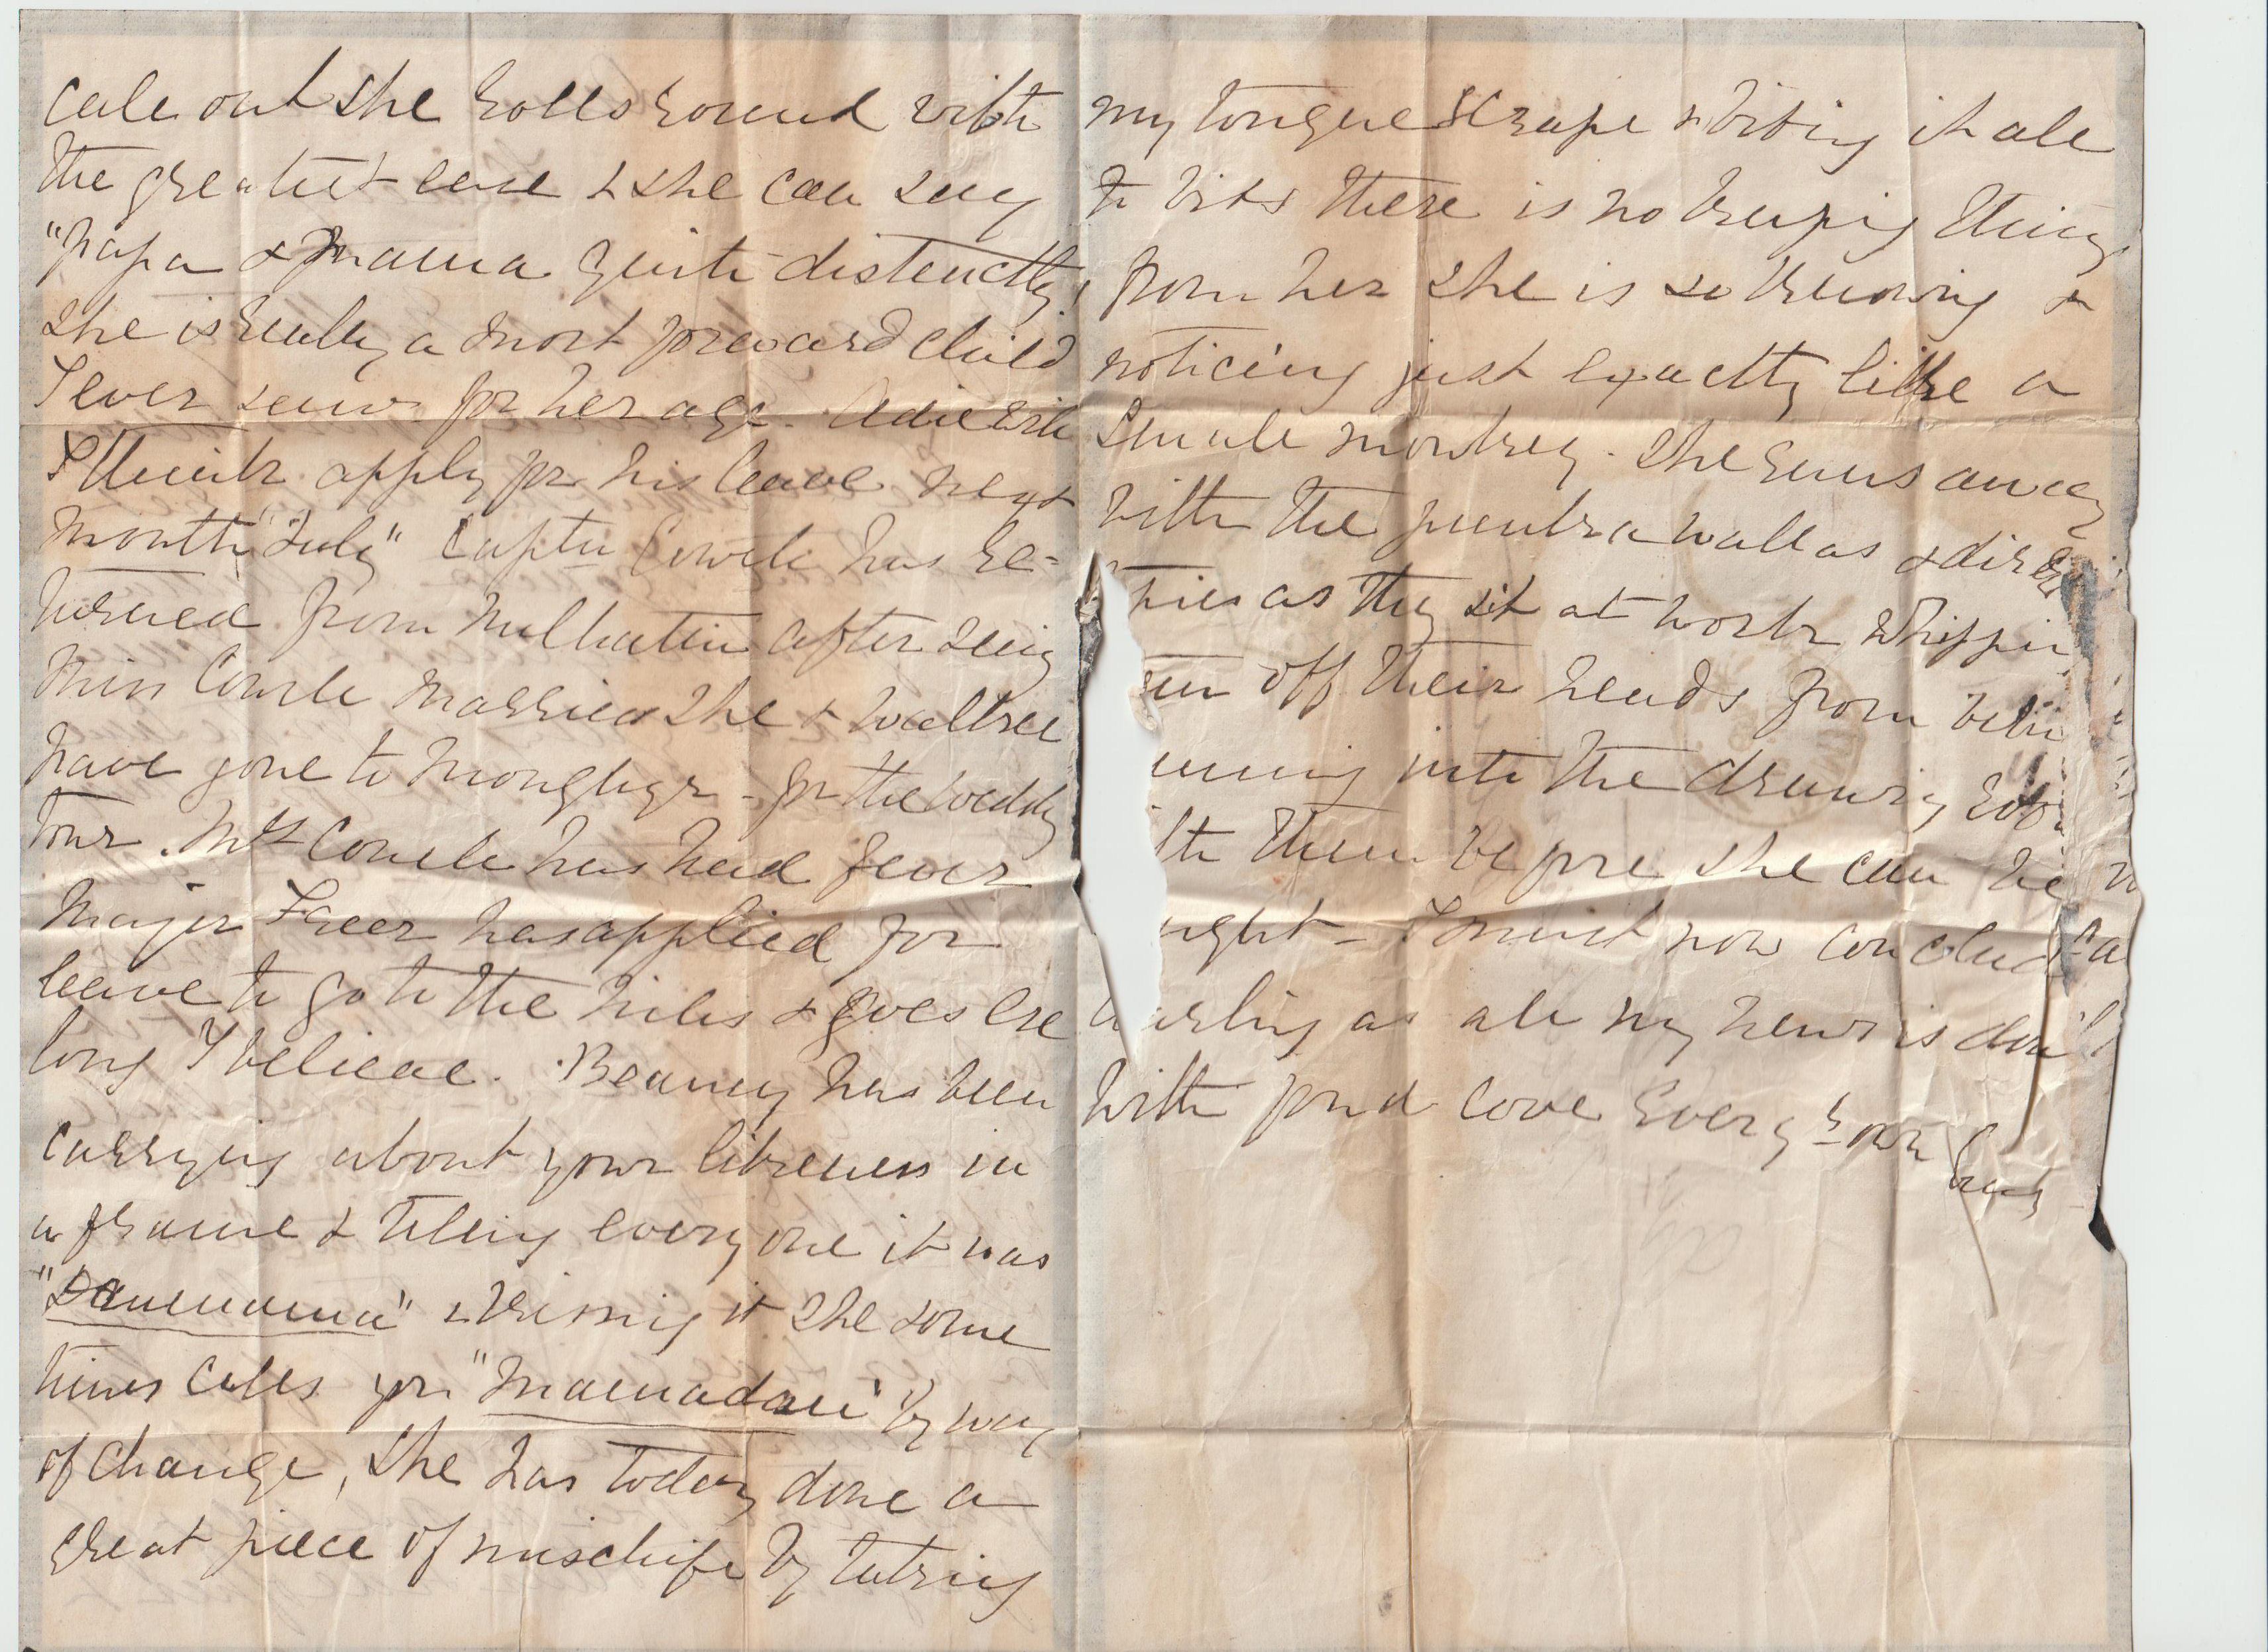 call out she rolls round with
the greatest ease & she can say
"papa & mama quite distinctly!
she is really a most forward child
I ever saw for her age. Adie will
I think apply for his leave next
month "July" Captn Cowell has re=
turned from Nulhatti after seeing
Miss married she &
have gone to Monghyr - for the wedding
tour. Mrs has had fever
Major has applied for
leave to go to the hills & goes ere
long I believe. Beamy has been
carrying about your likeness in
a frame & telling everyone it was
" " & kissing it she some
times calls you "Mamadau" by way
of change, she has today done a
great piece of mischife by taking
my tongue scrape & biting it all
to bits there is no keeping things
from her she is so knowing &
noticing just exactly like a
smale monkey. She runs away
with the punka wallas & dir
ies as they sit at work whippin
em off their heads from behi
unning into the drawing roo
ith them before she can be
ught - I must now conclud
arling as all my news is don
with fond love Every your